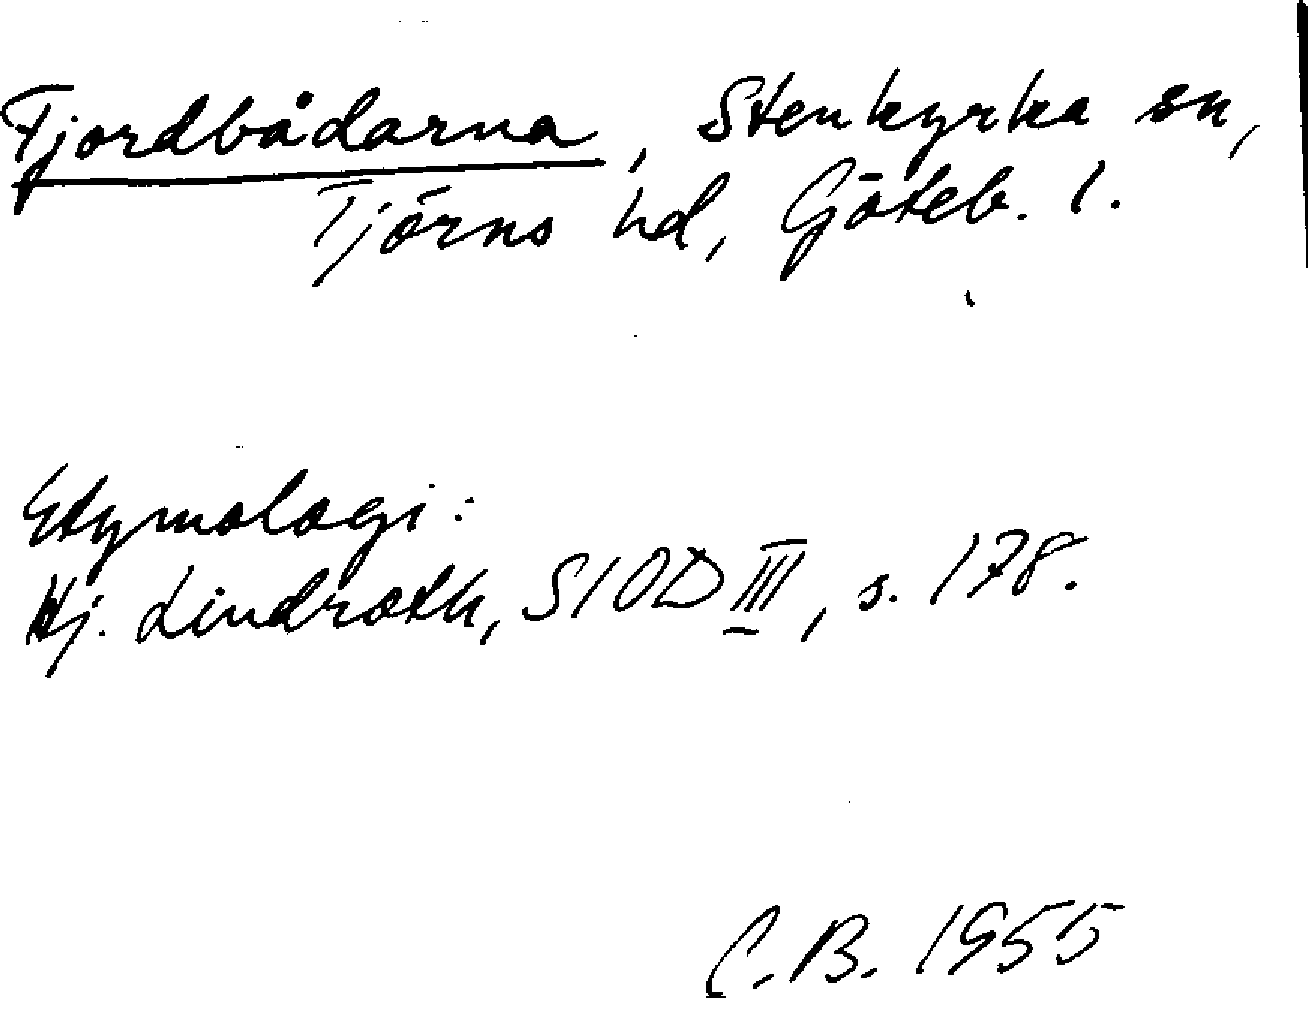 Fjordbådarna, Stenkyrka sn,
Tjörns hd, Göteb. l.
Etymologi:
Hj. Lindroth, SIOD III, s. 178.
C.B. 1955